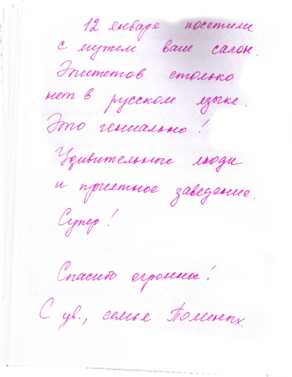 12 января посетили
с мужем ваш салон.
Эпитетов столько
нет в русском языке.
Это гениально!
Удивительные люди
и приятное заведение.
Супер!
Спасибо огромное!
С ув., семья